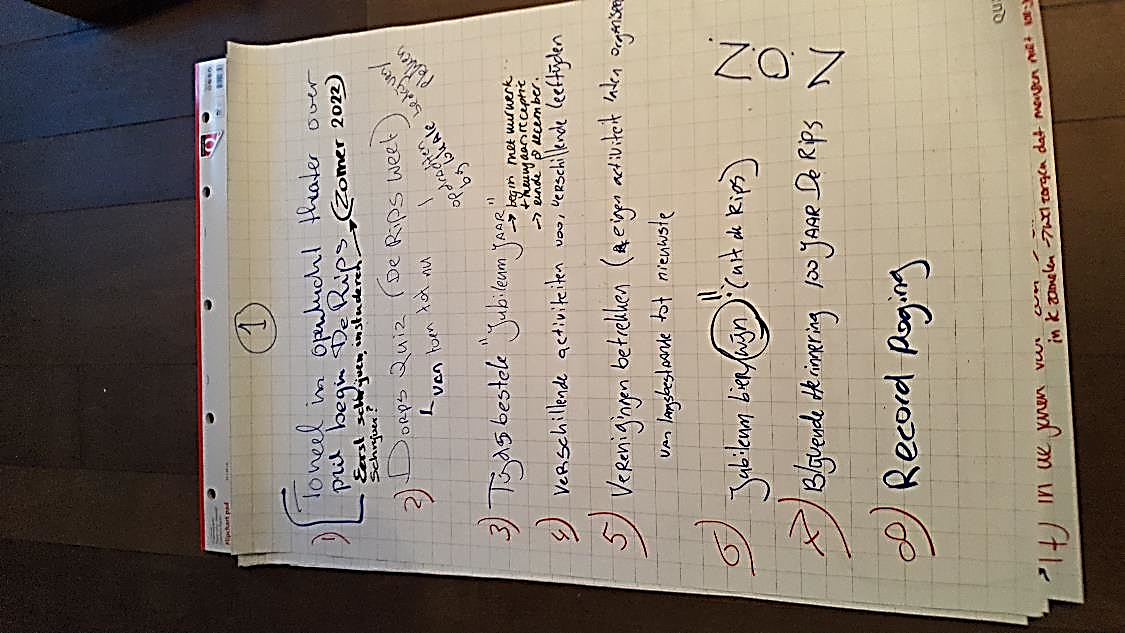 1
1) Toneel in openlucht theater over
pril begin De Rips → (Zomer 2022)
Eerst schrijven, instuderen
Schrijver?
2) DORPS QUIZ (De Rips weet)
van toen tot nu
opdrachten
op lokale
plekken
3) Tijdsbestek "Jubileum JAAR"
→ begin met vuurwerk
+ nieuwjaarsreceptie
→ einde december.
4) Verschillende activiteiten voor verschillende leeftijden
5) Verenigingen betrekken (eigen activiteit laten organiseren
van langstbestaande tot nieuwste
6) Jubileum bier/wijn (uit de Rips)
7) Blijvende Herinnering 100 JAAR De Rips
8) Record Poging
N
O
N
in te zamelen → zorgen dat mensen met
Flipchart pad